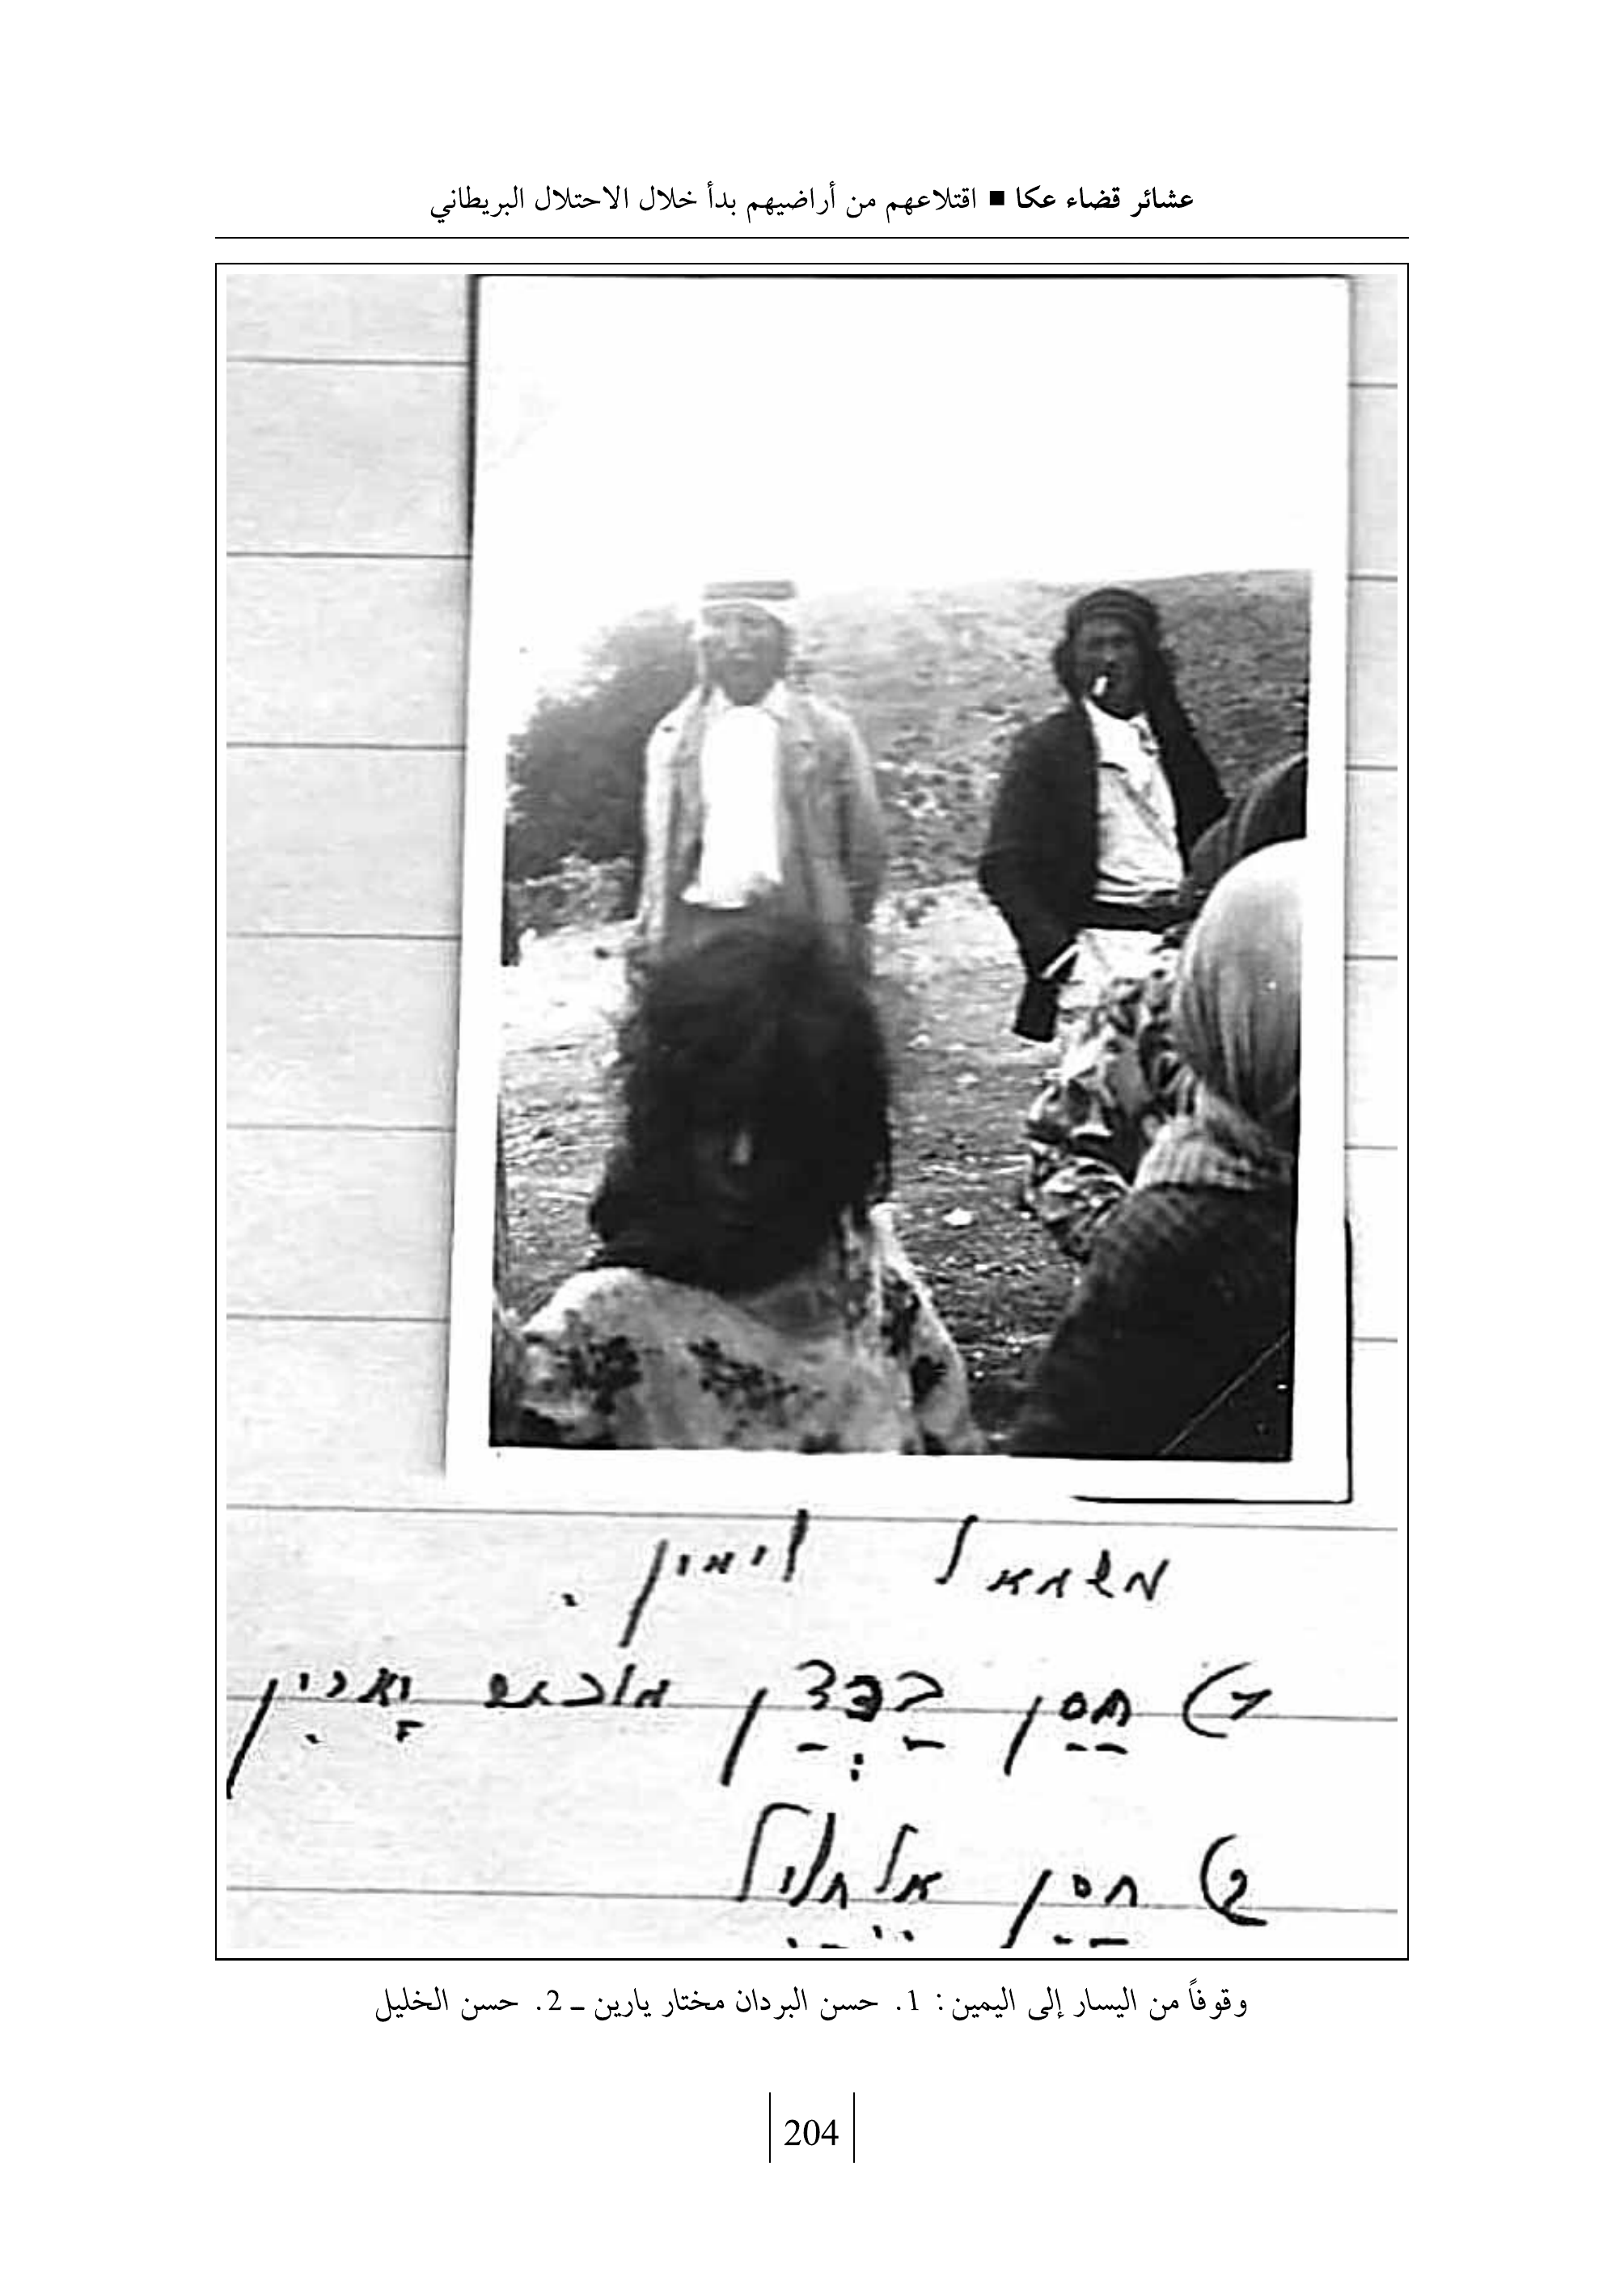 عشائر قضاء عكا ■ اقتلاعهم من أراضيهم بدأ خلال الاحتلال البريطاني
משמאל לימין.
1) חסן ברדן
2) חסן אל חליל
وقوفاً من اليسار إلى اليمين: 1. حسن البردان مختار يارين ـ 2. حسن الخليل
204